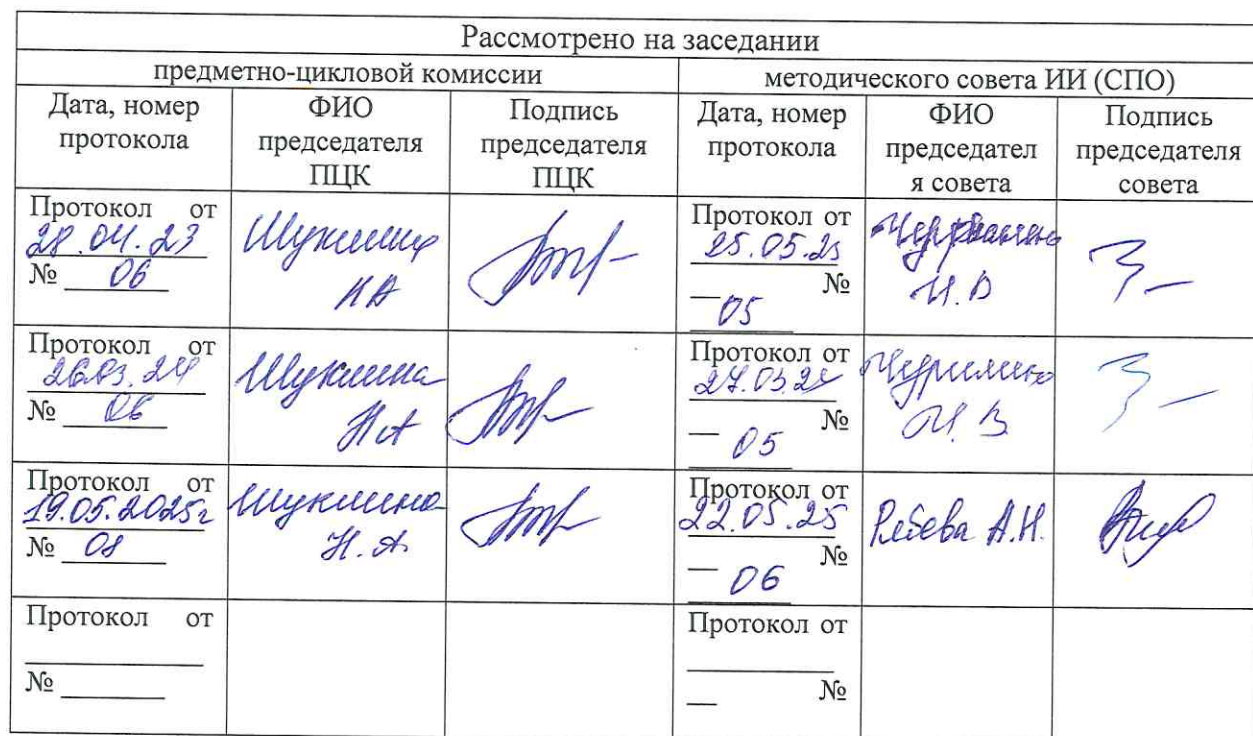 Рассмотрено на заседании
предметно-цикловой комиссии
методического совета ИИ (СПО)
Дата, номер
протокола
ФИО
председателя
ПЦК
Подпись
председателя
ПЦК
Дата, номер
протокола
ФИО
председател
я совета
Подпись
председателя
совета
Протокол от
28.04.23
№ 06
Шуклина
НА
Протокол от
25.05.23
№
05
И.В
Протокол от
26.03.24
№ 06
Шуклина
Н.А
Протокол от
27.03.24
№
05
И.В.
Протокол от
19.05.2025г
№ 08
Шуклина
Н.А.
Протокол от
22.05.25
№
06
А.Н.
Протокол от
№
Протокол от
№